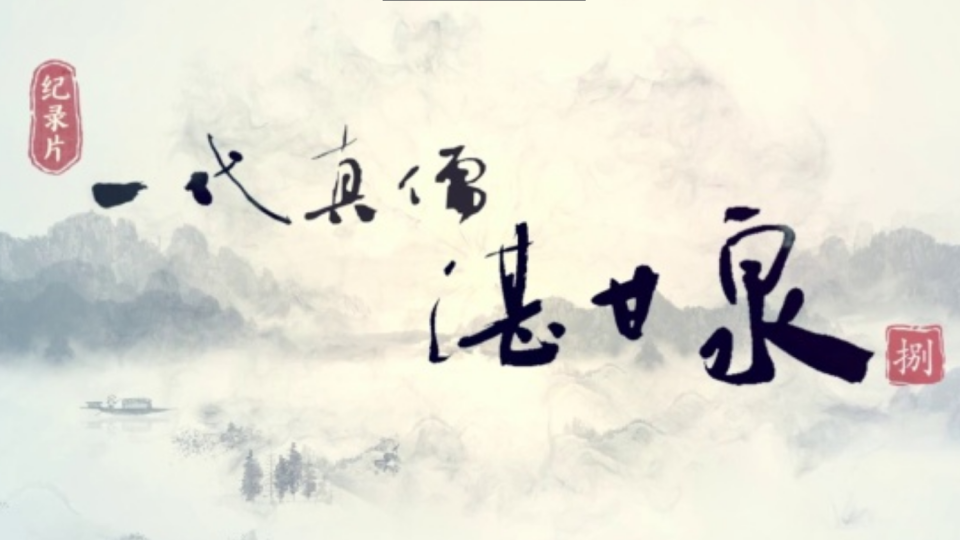 纪录片
一代真儒
湛甘泉
捌